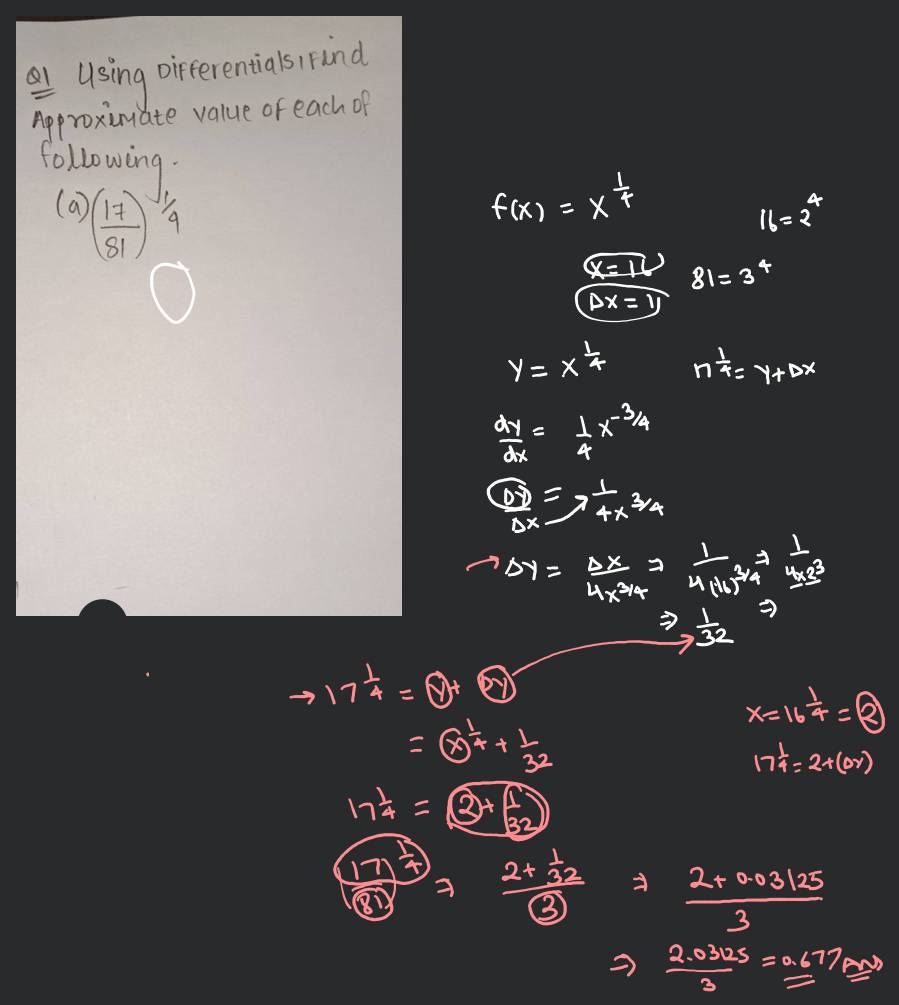 Q1 Using Differentials, Find
Approximate value of each of
following.
(a) (17/81)^1/4
f(x) = x^1/4
16 = 2^4
x = 16
81 = 3^4
Δx = 1
y = x^1/4
17^1/4 = y + Δx
dy/dx = 1/4 x^-3/4
Δy/Δx = 1/4x^3/4
Δy = Δx/4x^3/4 ⇒ 1/4(16)^3/4 ⇒ 1/4x2^3
⇒ 1/32 ⇒
→ 17^1/4 = y + Δy
x = 16^1/4 = 2
= x^1/4 + 1/32
17^1/4 = 2 + (Δy)
17^1/4 = 2 + 1/32
(17/81)^1/4 ⇒ 2 + 1/32 / 3 ⇒ 2 + 0.03125 / 3
⇒ 2.03125/3 = 0.677 Ans